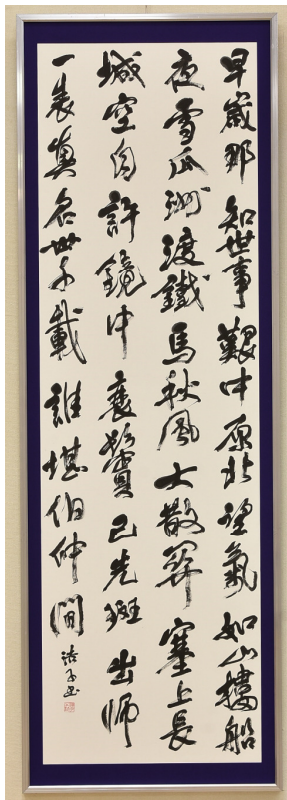 早歳那知世事艱中原北望氣如山楼船
夜雪瓜洲渡鐵馬秋風大散關塞上長
城空自許鏡中衰鬢已先斑出師
一表真名世千載誰堪伯仲間